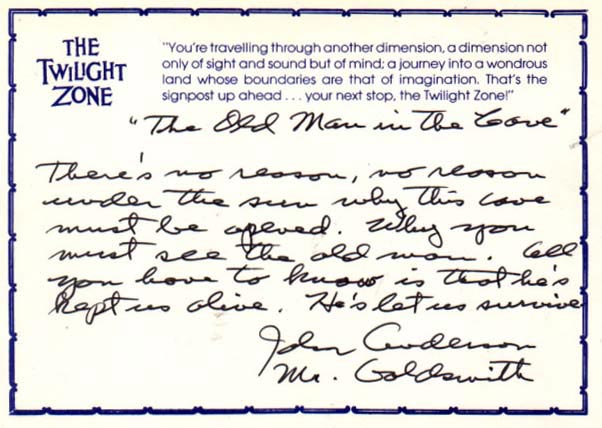 THE
TWILIGHT
ZONE
"You're travelling through another dimension, a dimension not
only of sight and sound but of mind; a journey into a wondrous
land whose boundaries are that of imagination. That's the
signpost up ahead . . . your next stop, the Twilight Zone!"
"The Old Man in the Cave"
There's no reason, no reason
under the sun why this cave
must be opened. Why you
must see the old man. All
you have to know is that he's
kept us alive. He's let us survive
John Anderson
Mr. Goldsmith